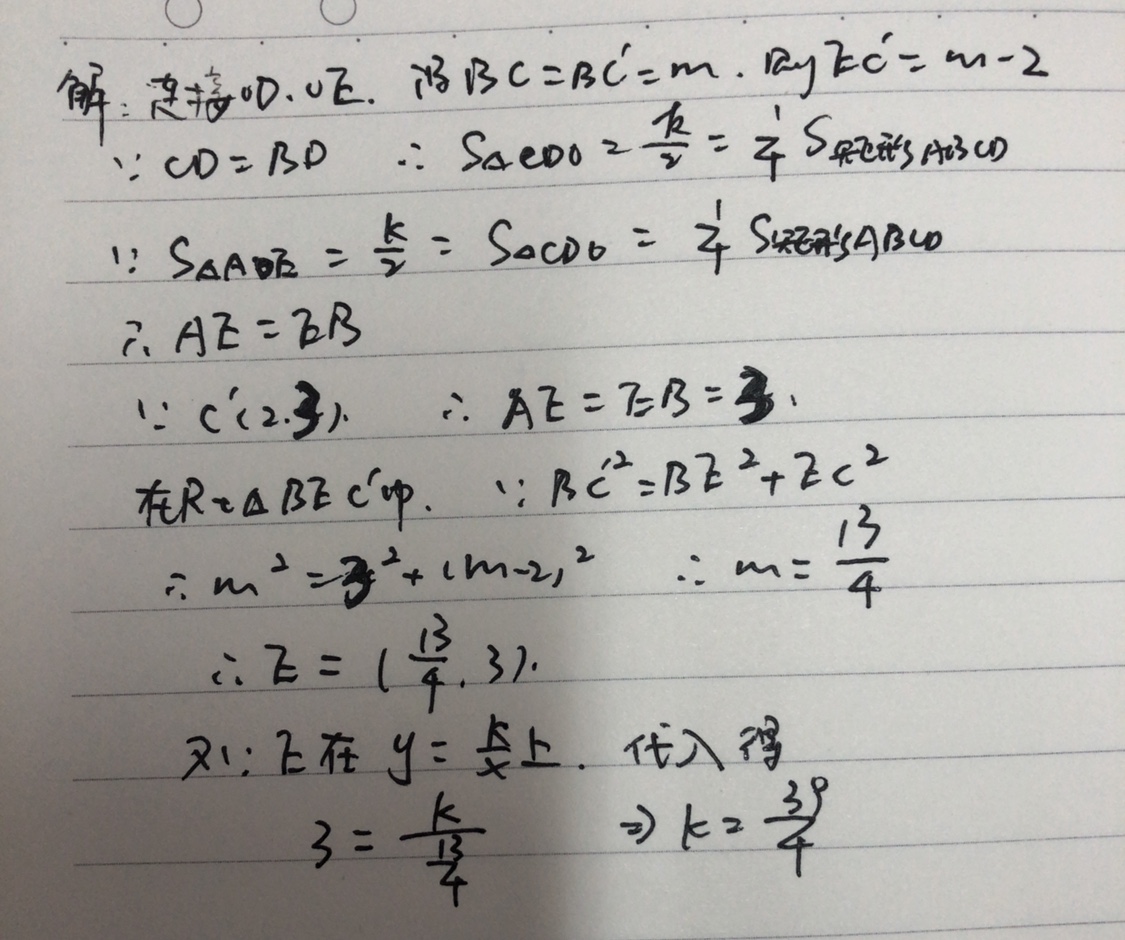 解：连接OD.OE. 设BC=BC′=m. 则EC′=m-2
∵ CD=BD ∴ S△CDO=k/2=1/4 S矩形ABCD
∵ S△AOE=k/2=S△CDO=1/4 S矩形ABCD
∴ AE=EB
∵ C′(2.3). ∴ AE=EB=3.
在Rt△BEC′中. ∵ BC′²=BE²+EC²
∴ m²=3²+(m-2)² ∴ m=13/4
∴ E=(13/4.3).
又∵ E在 y=k/x上. 代入得
3=k/(13/4) ⇒ k=39/4